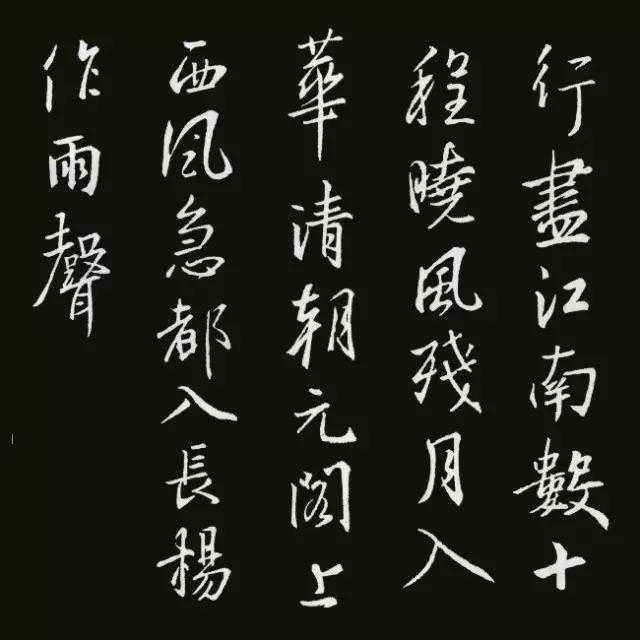 行盡江南數十
程曉風殘月入
華清朝元閣上
西风急都入長楊
作雨聲